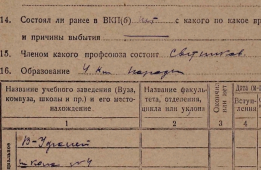 14. Состоял ли ранее в ВКП(б) Нет с какого по какое вре
и причины выбытия
15. Членом какого профсоюза состоит
16. Образование 4 кл.
Название учебного заведения (Вуза, комвуза, школы и пр.) и его местонахождение.
Название факультета, отделения, цикла или уклона
Окончено или нет
Дата (м-
Вступления
1 2 3 4
школа №4